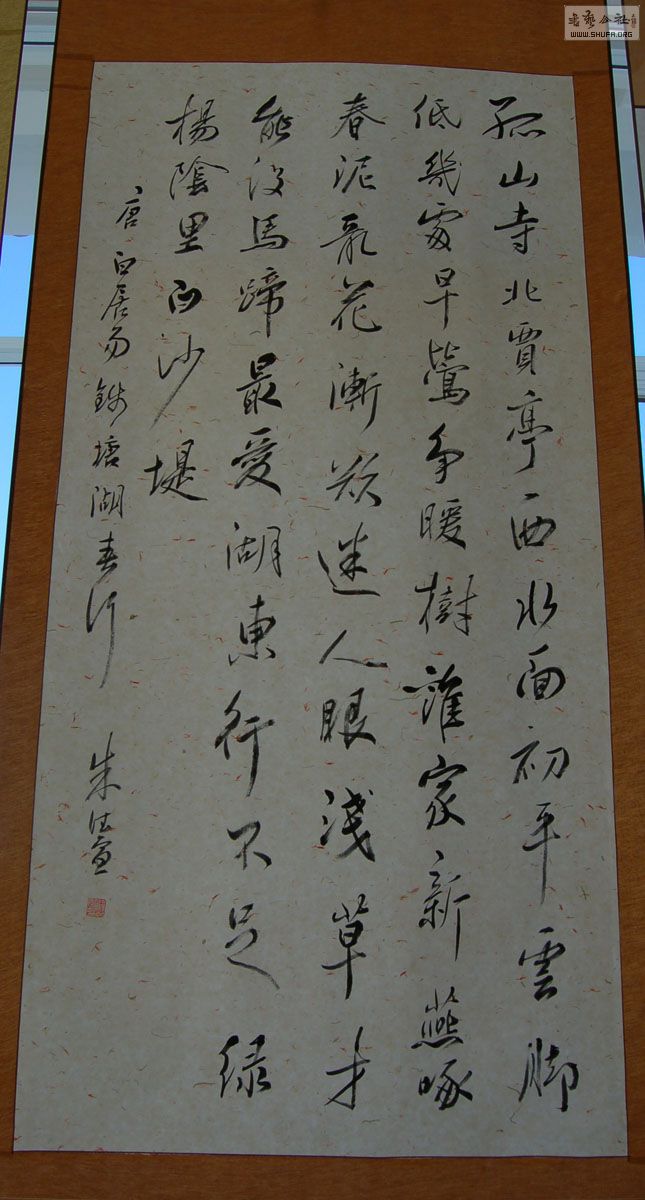 孤山寺北賈亭西水面初平雲脚
低幾處早鶯爭暖樹誰家新燕啄
春泥亂花漸欲迷人眼淺草才
能没馬蹄最愛湖東行不足绿
楊陰里白沙堤
唐白居易錢塘湖春行
朱
書艺公社
WWW.SHUFA.ORG